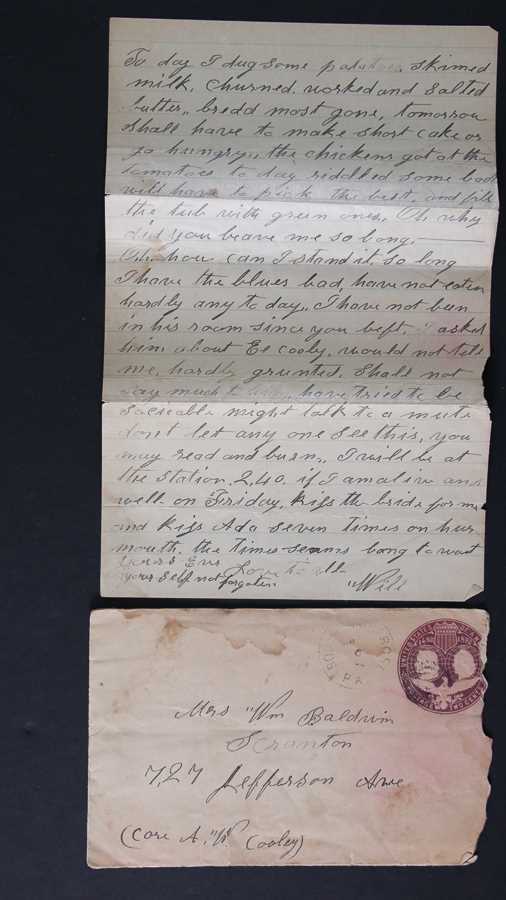 To day I dug some potatoes. skimed
milk, churned. worked and salted
butter,, bredd most gone, tomorrow
shall have to make short cake or
go hungry,, the chickens got at the
tomatoes to day riddled some bad
will have to pick the best, and fill
the tub with green ones. Oh why
did you leave me so long.
Oh. how can I stand it so long
I have the blues bad, have not eaten
hardly any to day,, I have not been
in his room since you left I asked
him about Ee cooly. would not tell
me, hardly grunted. Shall not
say much to him, have tried to be
sociable might talk to a mute
dont let any one see this, you
may read and burn,, I will be at
the station 2,40. if I am alive and
well on Friday, kiss the bride for me
and kiss Ada seven times on hur
mouth. the times seems long to wait
yours Ever Love to all
your self not forgoten "Will
UNITED STATES
Mrs "Wm Baldwin
Scranton
727 Jefferson Ave
(Care A. "W. Cooley)